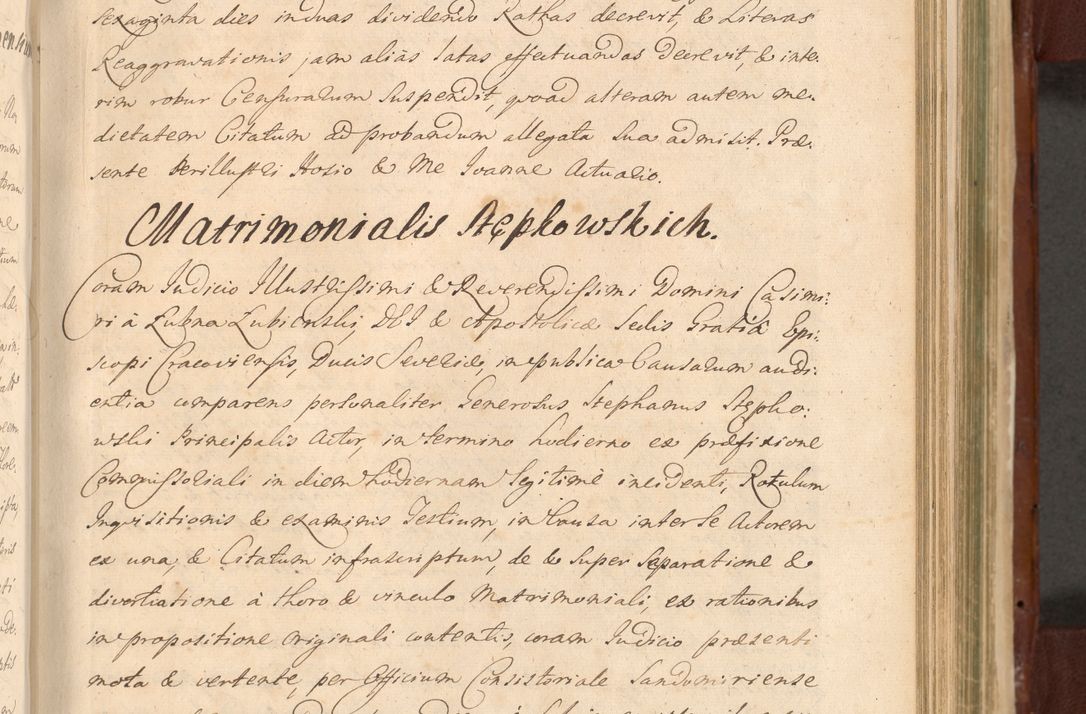 sexaginta dies in duas dividendo Ratkas decrevit, & Literas
Reaggravationis jam aliàs latas effectuandas decrevit, & inte-
rim robur Censurarum Suspendit, quoad alteram autem me-
dietatem Citatum ad probandum allegata Sua admisit. Præ-
sente Perillustri Hosio & Me Joanne Actuario.
Matrimonialis Stępkowskich.
Coram Judicio Illustrissimi & Reverendissimi Domini Casimi-
ri à Łubna Łubienski, DEI & Apostolicæ Sedis Gratiâ Epi-
scopi Cracoviensis, Ducis Severiæ, in publica Causarum audi-
entia comparens personaliter Generosus Stephanus Stępko-
wski Principalis Actor, in termino hodierno ex præfixione
Commissoriali in diem hodiernam legitimè incidenti, Rotulum
Inquisitionis & examinis Testium, in Causa inter se Actorem
ex una, & Citatum infrascriptum, de & super Separatione &
divortiatione à thoro & vinculo Matrimoniali, ex rationibus
in propositione originali contentis, coram Judicio præsenti
mota & vertente, per Officium Consistoriale Sandomiriense